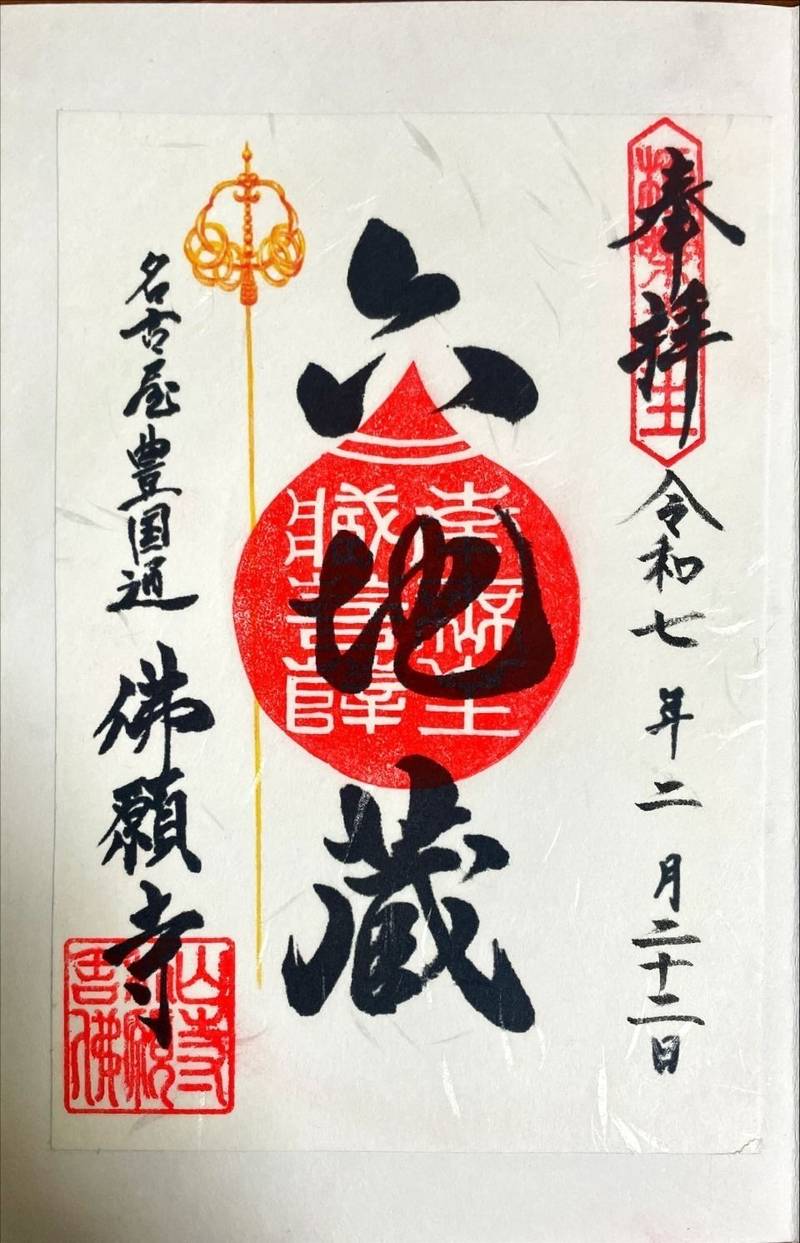 奉拝
令和七年二月二十二日
六地蔵
名古屋豊国通
佛願寺